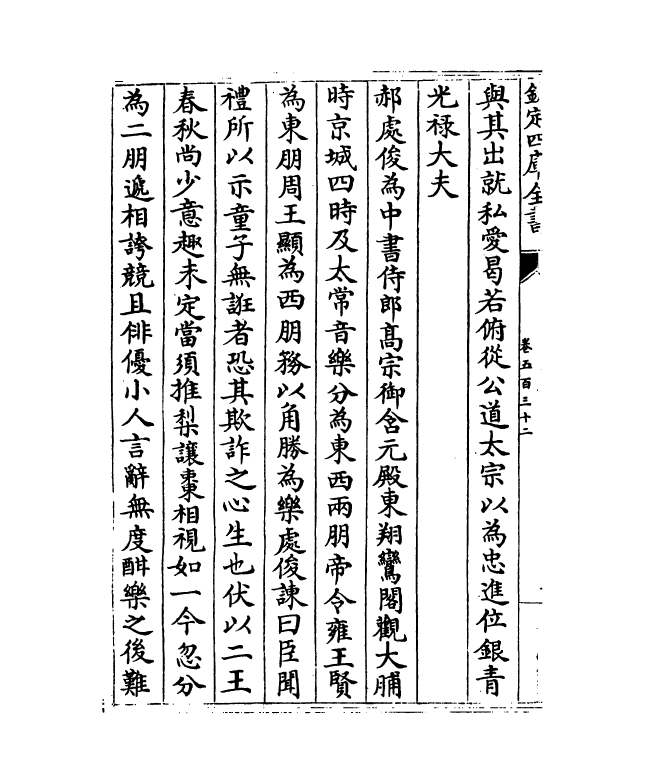 欽定四庫全書
卷五百三十二
與其出就私愛曷若俯從公道太宗以為忠進位銀青
光祿大夫
郝處俊為中書侍郎高宗御含元殿東翔鸞閣觀大酺
時京城四時及太常音樂分為東西兩朋帝令雍王賢
為東朋周王顯為西朋務以角勝為樂處俊諫曰臣聞
禮所以示童子無誑者恐其欺詐之心生也伏以二王
春秋尚少意趣未定當須推梨讓棗相視如一今忽分
為二朋遞相誇競且俳優小人言辭無度酣樂之後難